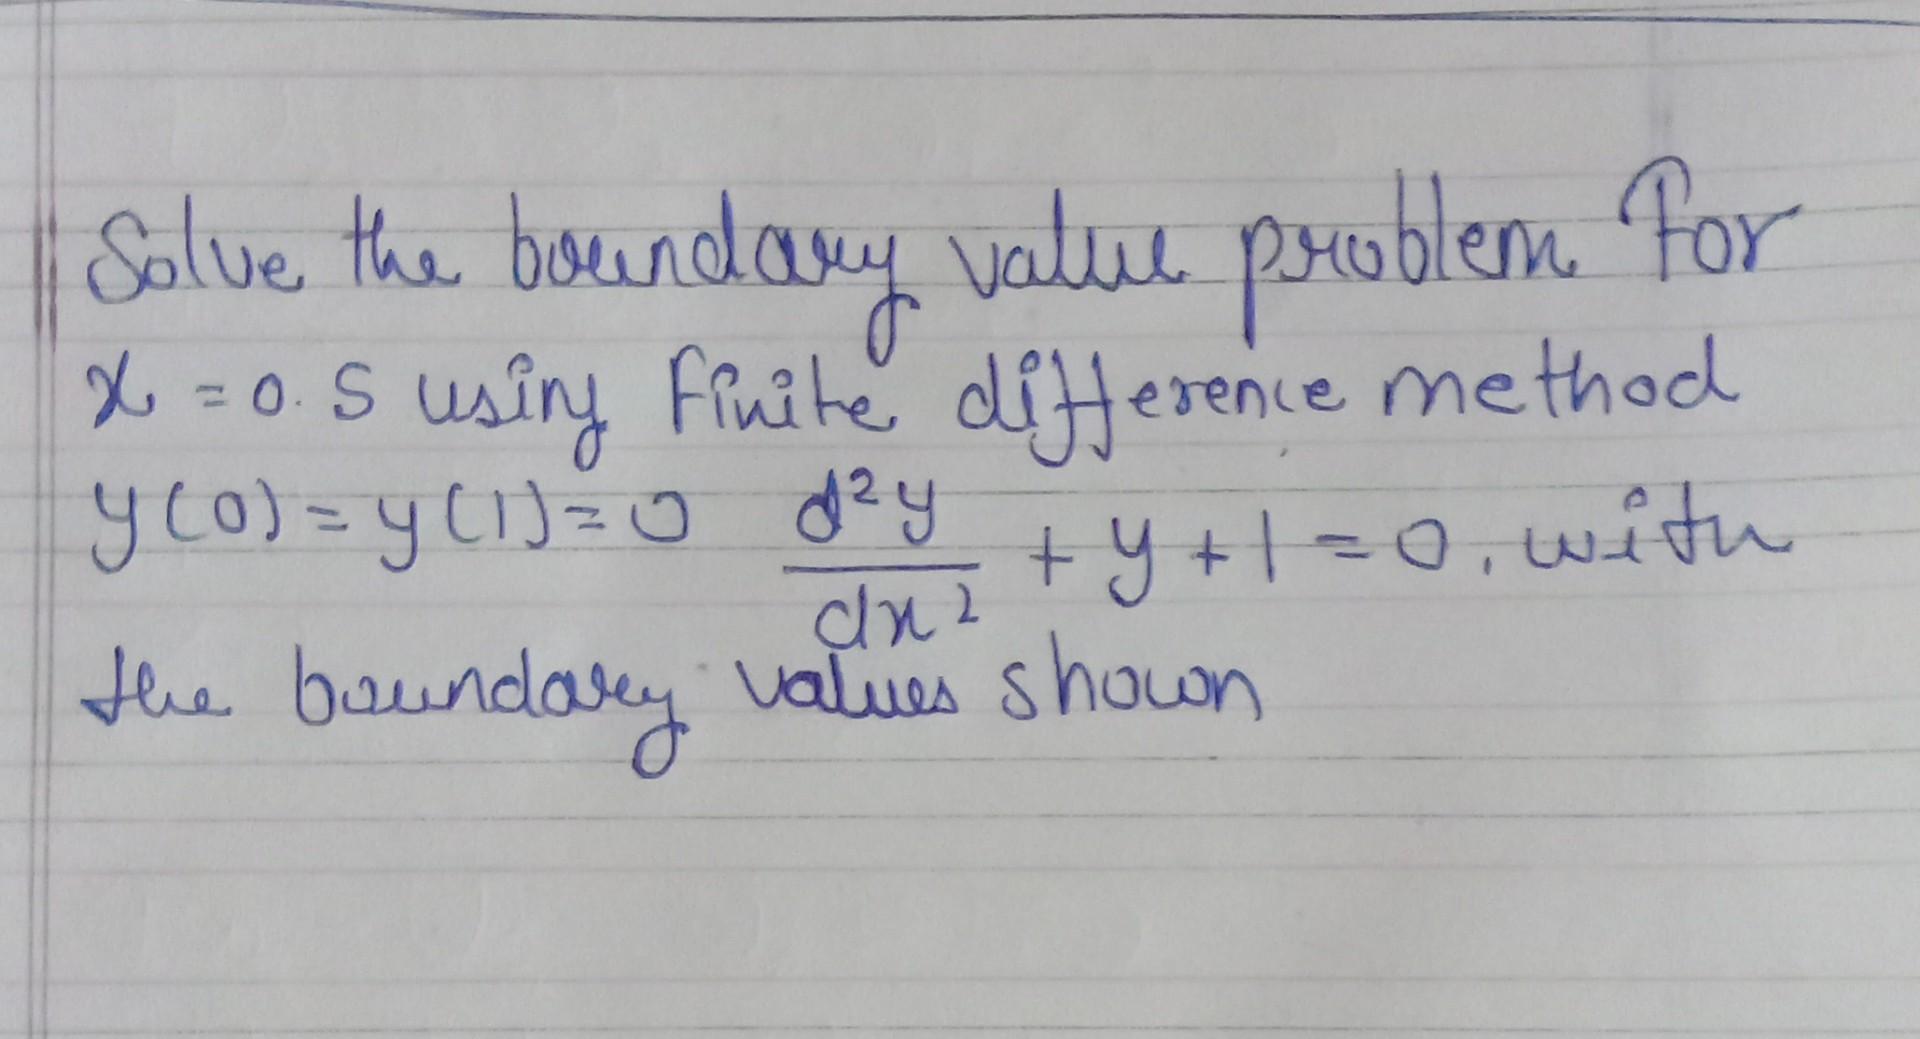 Solve the boundary value problem for
x = 0.5 using finite difference method
y(0) = y(1) = 0 d²y/dx² + y + 1 = 0, with
the boundary values shown